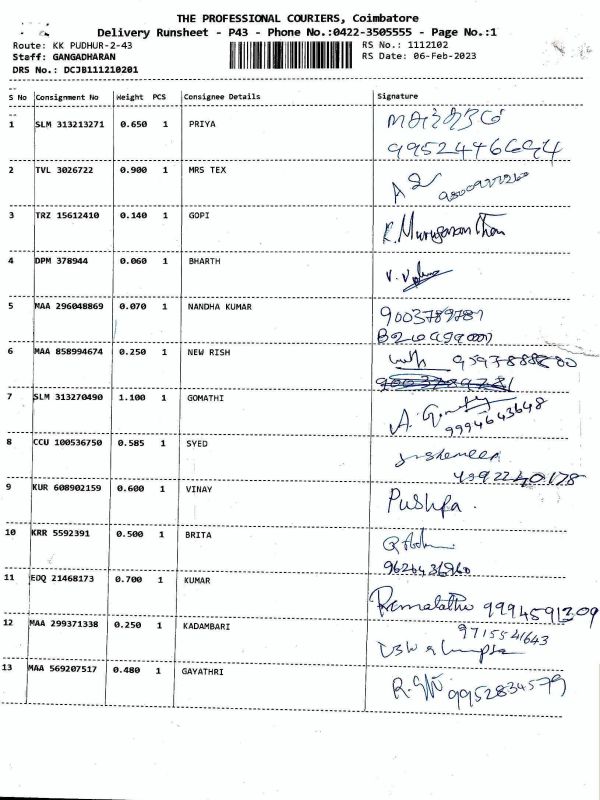 THE PROFESSIONAL COURIERS, Coimbatore
Delivery Runsheet - P43 - Phone No.:0422-3505555 - Page No.:1
Route: KK PUDHUR-2-43 RS No.: 1112102
Staff: GANGADHARAN RS Date: 06-Feb-2023
DRS No.: DCJB111210201
S No Consignment No Weight PCS Consignee Details Signature
1 SLM 313213271 0.650 1 PRIYA
2 TVL 3026722 0.900 1 MRS TEX
3 TRZ 15612410 0.140 1 GOPI
4 DPM 378944 0.060 1 BHARTH
5 MAA 296048869 0.070 1 NANDHA KUMAR 9003789781
6 MAA 858994674 0.250 1 NEW RISH
7 SLM 313270490 1.100 1 GOMATHI 9994643648
8 CCU 100536750 0.585 1 SYED
9 KUR 608902159 0.600 1 VINAY Pushpa.
10 KRR 5592391 0.500 1 BRITA
11 EDQ 21468173 0.700 1 KUMAR 9994591309
12 MAA 299371338 0.250 1 KADAMBARI 9715541643
13 MAA 569207517 0.480 1 GAYATHRI 9952834579